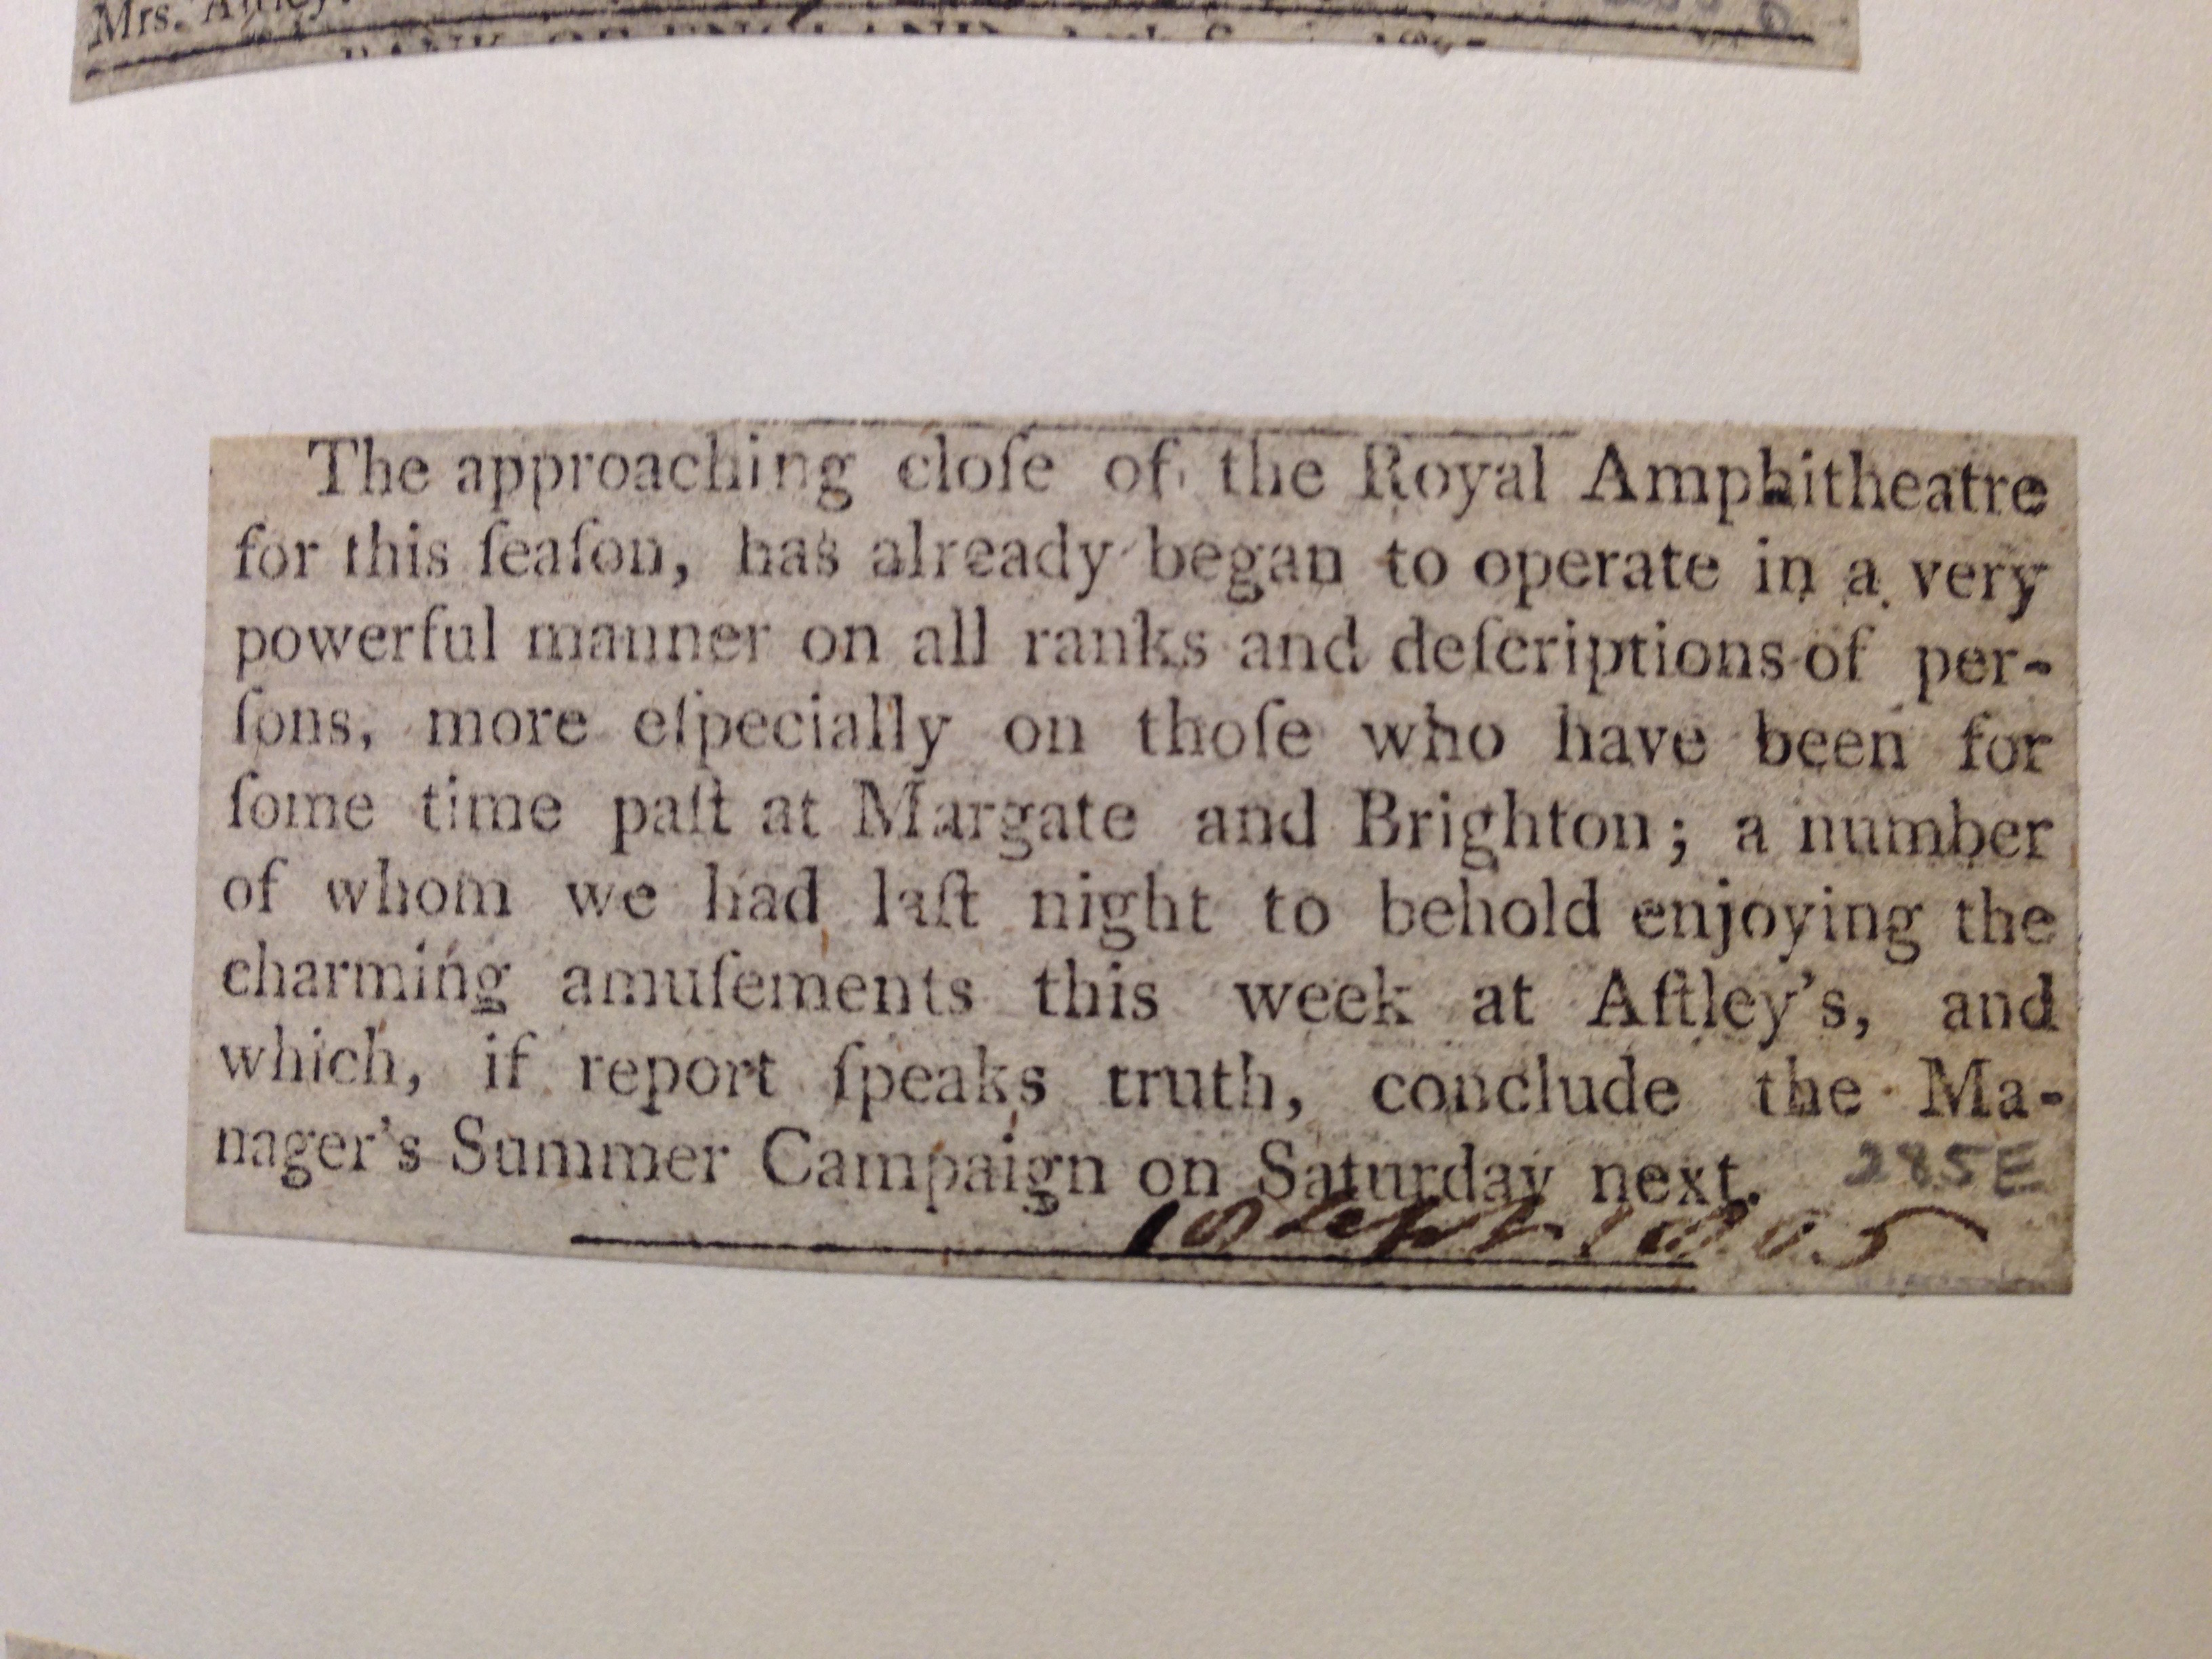 Mrs. Aſtley.
BANK OF ENGLAND,
The approaching cloſe of the Royal Amphitheatre
for this ſeaſon, has already began to operate in a very
powerful manner on all ranks and deſcriptions of per-
ſons, more eſpecially on thoſe who have been for
ſome time paſt at Margate and Brighton; a number
of whom we had laſt night to behold enjoying the
charming amuſements this week at Aſtley's, and
which, if report ſpeaks truth, conclude the Ma-
nager's Summer Campaign on Saturday next. 285E
10 Sept. 1805